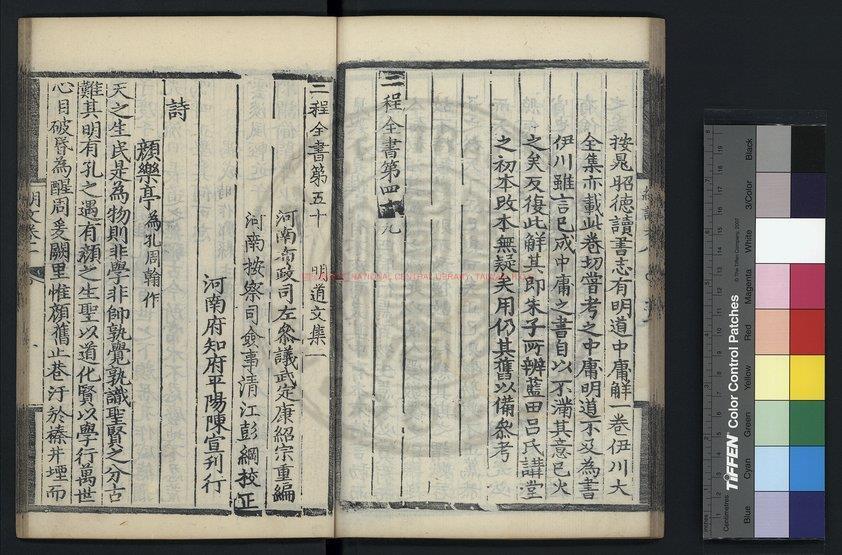 按晁昭徳讀書志有明道中庸解一卷伊川大
全集亦載此卷切嘗考之中庸明道不及為書
伊川雖言已成中庸之書自以不滿其意已火
之矣反復此解其即朱子所辨藍田呂氏講堂
之初本改本無疑矣用仍其舊以備叅考
二程全書第四十九
二程全書第五十 明道文集一
河南布政司左叅議武定康紹宗重編
河南按察司僉事清江彭綱校正
河南府知府平陽陳宣刋行
詩
顔樂亭為孔周翰作
天之生民是為物則非學非師孰覺孰識聖賢之分古
難其明有孔之遇有顔之生聖以道化賢以學行萬世
心目破昏為醒周爰闕里惟顔舊止巷汙於榛井堙而
NATIONAL CENTRAL LIBRARY, TAIWAN
TIFFEN Color Control Patches
© The Tiffen Company, 2007
Centimetres
Inches
Blue
Cyan
Green
Yellow
Red
Magenta
White
3/Color
Black